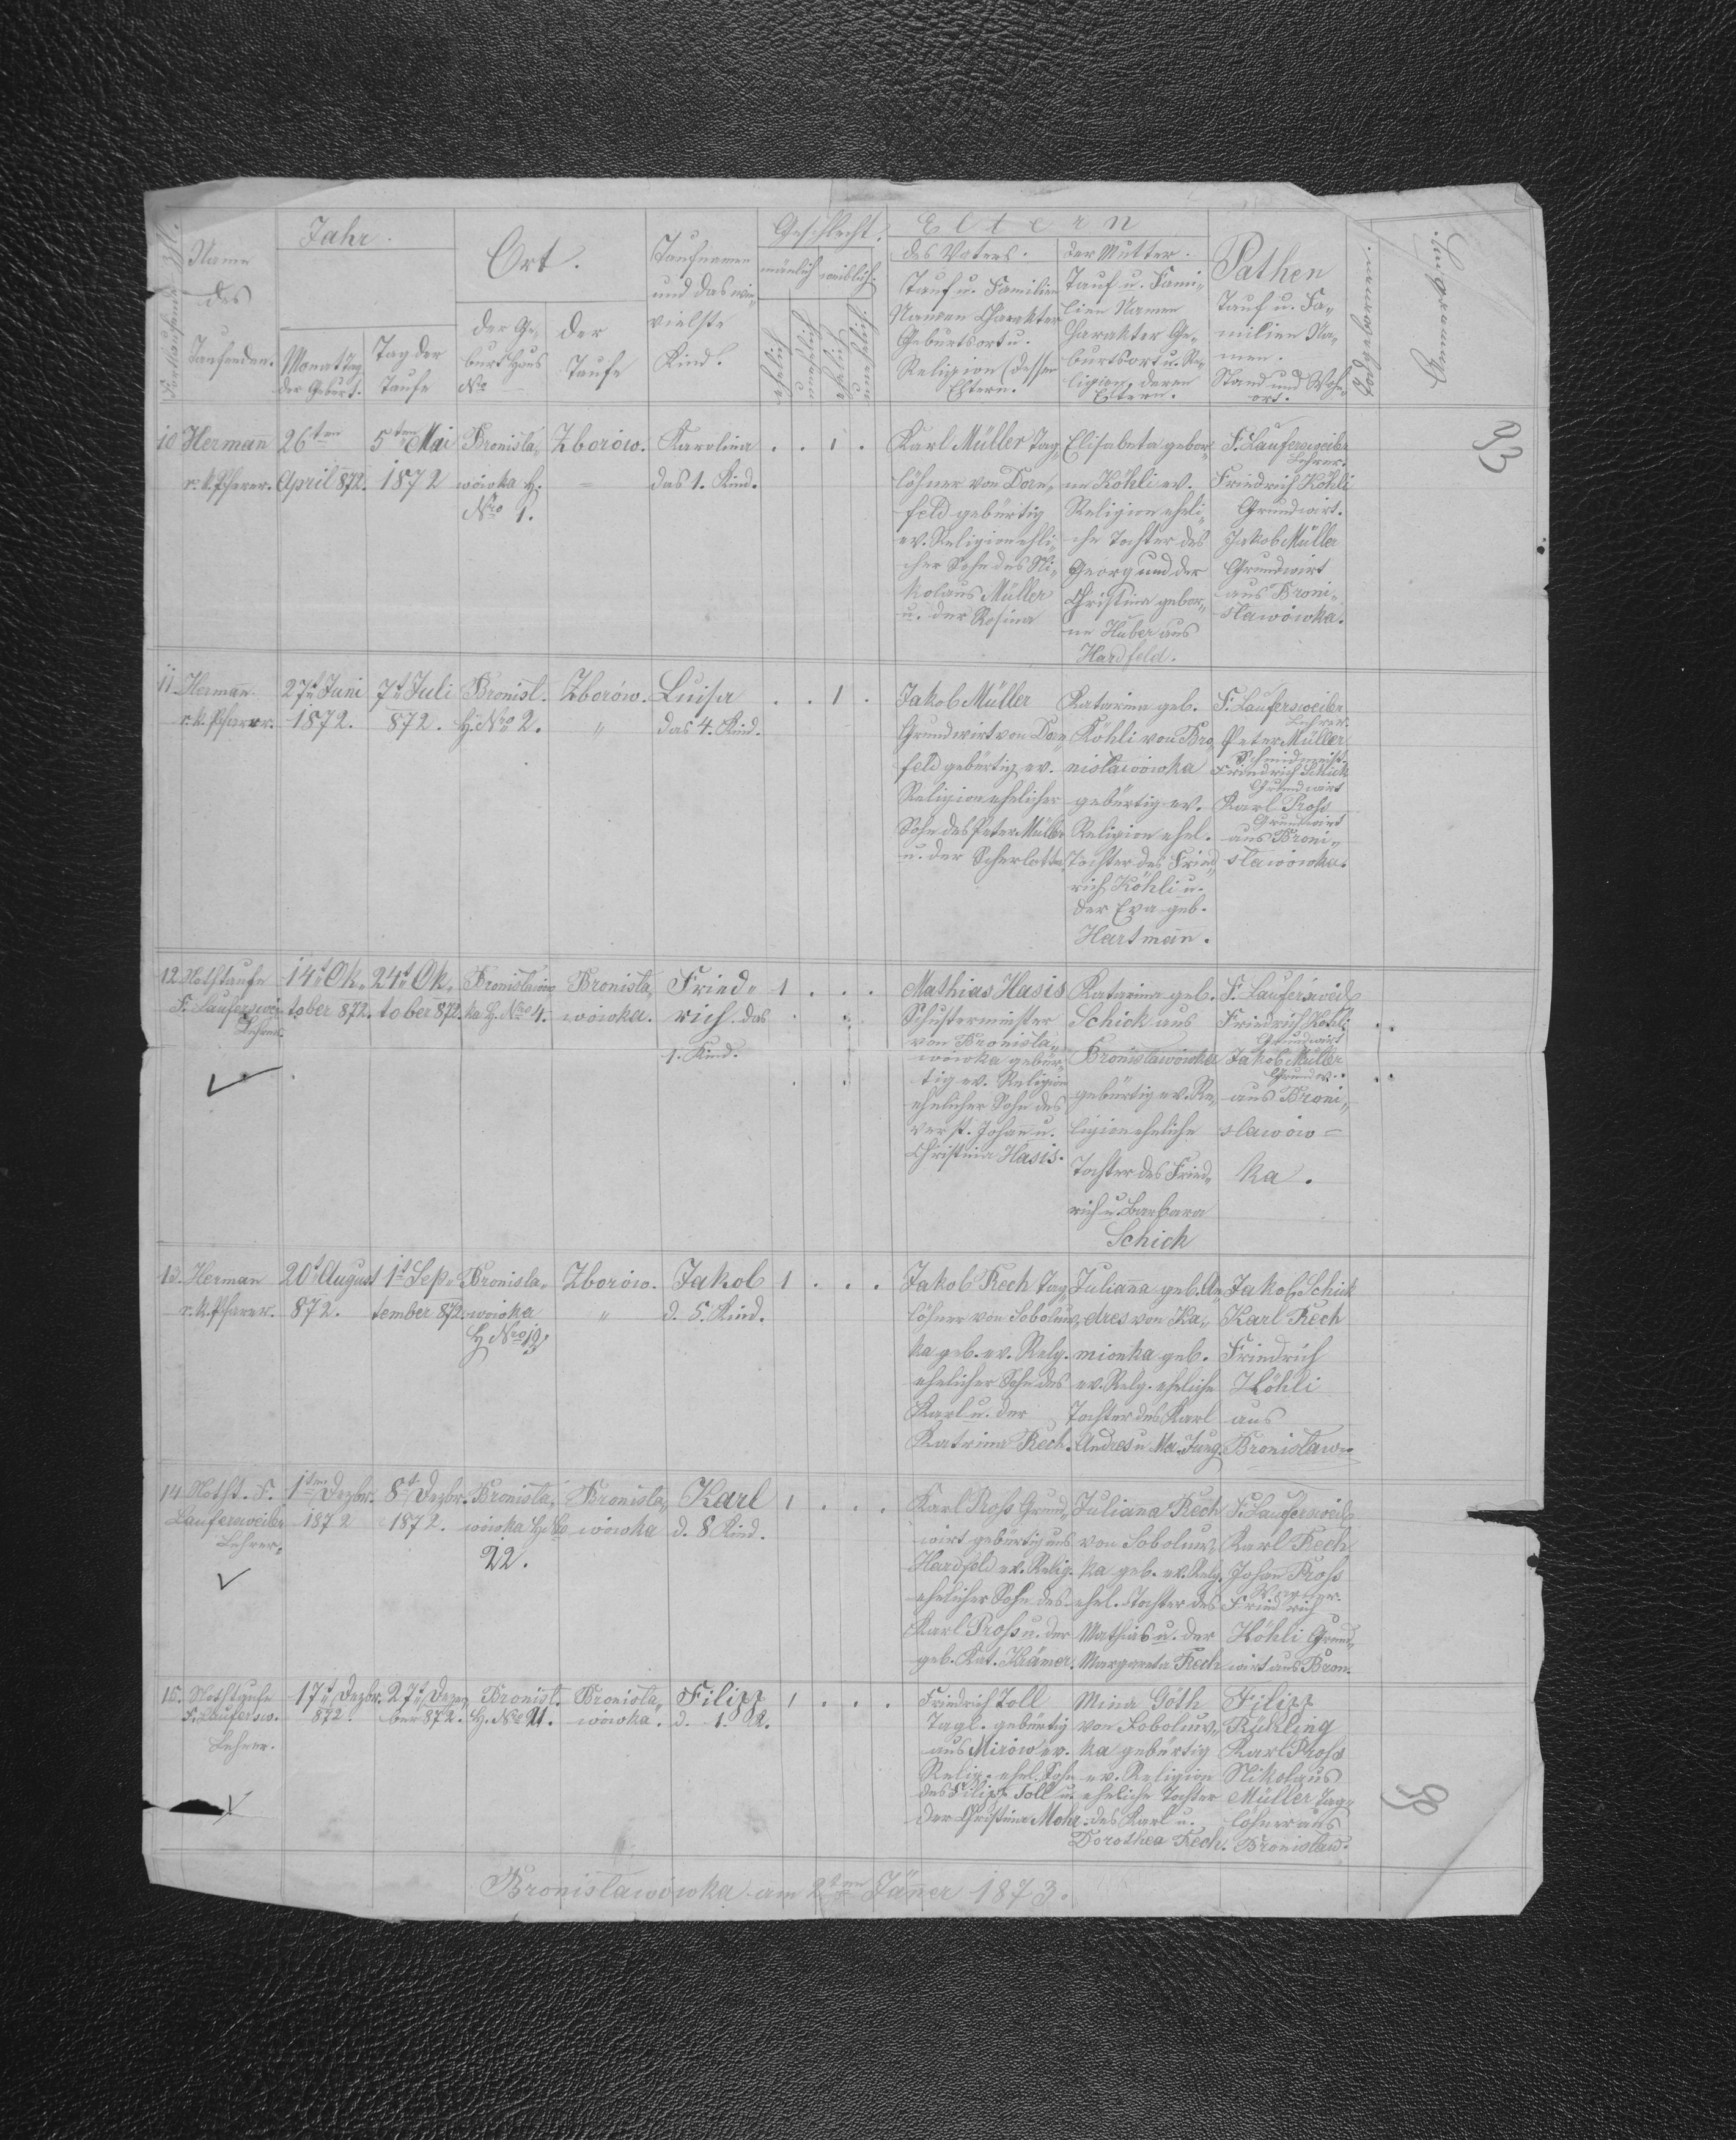 Fortlaufende Zl.
Name
des
Taufenden.
Jahr.
Monat Tag
der Geburt.
Tag der
Taufe
Ort.
der Ge-
burt Haus
No
der
Taufe
Taufnamen
und das wie-
vielste
Kind.
Geschlecht.
mänlich weiblich
ehelich
unehelich
ehelich
unehelich
Eltern
des Vaters.
Tauf u. Familien
Namen Charakter
Geburtsort u.
Religion (dessen
Eltern.
der Mutter.
Tauf u. Fami-
lien Namen
Charakter Ge-
burtsort u. Re-
ligion, deren
Eltern.
Pathen
Tauf u. Fa-
milien Na-
men.
Stand und Wohn-
ort.
10 Herman̄
r. k. Pfarrer.
26ten
April 872.
5ten Mai
1872
Bronisla-
wówka H.
Nro 1.
Zborów.
Karolina
das 1. Kind.
. . 1 .
Karl Müller Tag-
löhner von Dorn-
feld gebürtig
ev. Religion ehli-
cher Sohn des Ni-
kolaus Müller
u. der Rosina
Elisabeta gebor-
ne Köhli ev.
Religion eheli-
che Tochter des
Georg und der
Christina gebor-
ne Huber aus
Hardfeld.
F. Laufersweiler
Lehrer.
Friedrich Köhli
Grundwirt.
Jakob Müller
Grundwirt
aus Broni-
slawówka.
93
11 Herman̄
r. k. Pfarrer.
27t Juni
1872.
7t Juli
872.
Bronisl.
H. Nro 2.
Zborów.
"
Luisa
das 4. Kind.
. . 1 .
Jakob Müller
Grundwirt von Dorn-
feld gebürtig ev.
Religion ehelicher
Sohn des Peter Müller
u. der Scherlotta
Katarina geb.
Köhli von Bro-
nislawówka
gebürtig ev.
Religion ehel.
Tochter des Fried-
rich Köhli u.
der Eva geb.
Hartman̄.
F. Laufersweiler
Lehrer.
Peter Müller
Friedrich Schick
Grundwirt
Karl Proß
Grundwirt
aus Broni-
slawówka.
12 Nothtaufe
F. Lauferswei-
Lehrer.
14t Ok-
tober 872.
24t Ok-
tober 872.
Bronislawów-
ka H. Nro 4.
Bronisla-
wówka.
Fried-
rich das
1. Kind.
1 . . .
Mathias Hasis
Schustermeister
von Bronisla-
wówka gebür-
tig ev. Religion
ehelicher Sohn des
verst. Johan u.
Christina Hasis.
Katarina geb.
Schick aus
Bronislawówka
gebürtig ev. Re-
ligion eheliche
Tochter des Fried-
rich u. Barbara
Schick
F. Laufersweil
Friedrich Kohli
Grundwirt
Jakob Müller
Grundw.
aus Broni-
slawów=
ka.
13. Herman
r. k. Pfarrer.
20t August
872.
1t Sep-
tember 872.
Bronisla-
wówka
H Nro 19.
Zborów.
"
Jakob
d. 5. Kind.
1 . . .
Jakob Rech Tag-
löhner von Sobolów-
ka geb. ev. Relg.
ehelicher Sohn des
Karl u. der
Katrina Rech.
Juliana geb. An-
dres von Ka-
mionka geb.
ev. Relg. eheliche
Tochter des Karl
Andres u Ma. Jung
Jakob Schick
Karl Rech
Friedrich
Höhli
aus
Bronislaw-
14 Notht. F.
Laufersweiler
Lehrer.
1ten Dezbr.
1872
8t Dezbr.
1872.
Bronisla-
wówka H. No
22.
Bronisla-
wówka
Karl
d. 8 Kind.
1 . . .
Karl Proß Grund-
wirt gebürtig aus
Hardfeld ev. Relig.
ehelicher Sohn des
Karl Proß u. der
geb. Kat. Krämer.
Juliana Rech
von Sobolów-
ka geb. ev. Relg.
ehel. Tochter des
Mathias u. der
Margareta Rech
F. Laufersweil
Karl Rech
Johan Proß
Friedrich
Höhli Grund-
wirt aus Bron.
15. Nothtaufe
F. Laufersw.
Lehrer.
17t Dezbr.
872.
27t Dezem-
ber 872.
Bronisl.
H. Nro 21.
Bronisla-
wówka.
Filipp
d. 1. K.
1 . . .
Friedrich Toll
Tagl. gebürtig
aus Mirów ev.
Relig. ehel. Sohn
des Filipp Toll u.
der Christina Mohr.
Mina Göth
von Sobolów-
ka gebürtig
ev. Religion
eheliche Tochter
des Karl u.
Dorothea Rech.
Filipp
Rükling
Karl Proß
Nikolaus
Müller Tag-
löhner aus
Bronislaw.
Bronislawówka am 2ten Jäner 1873.